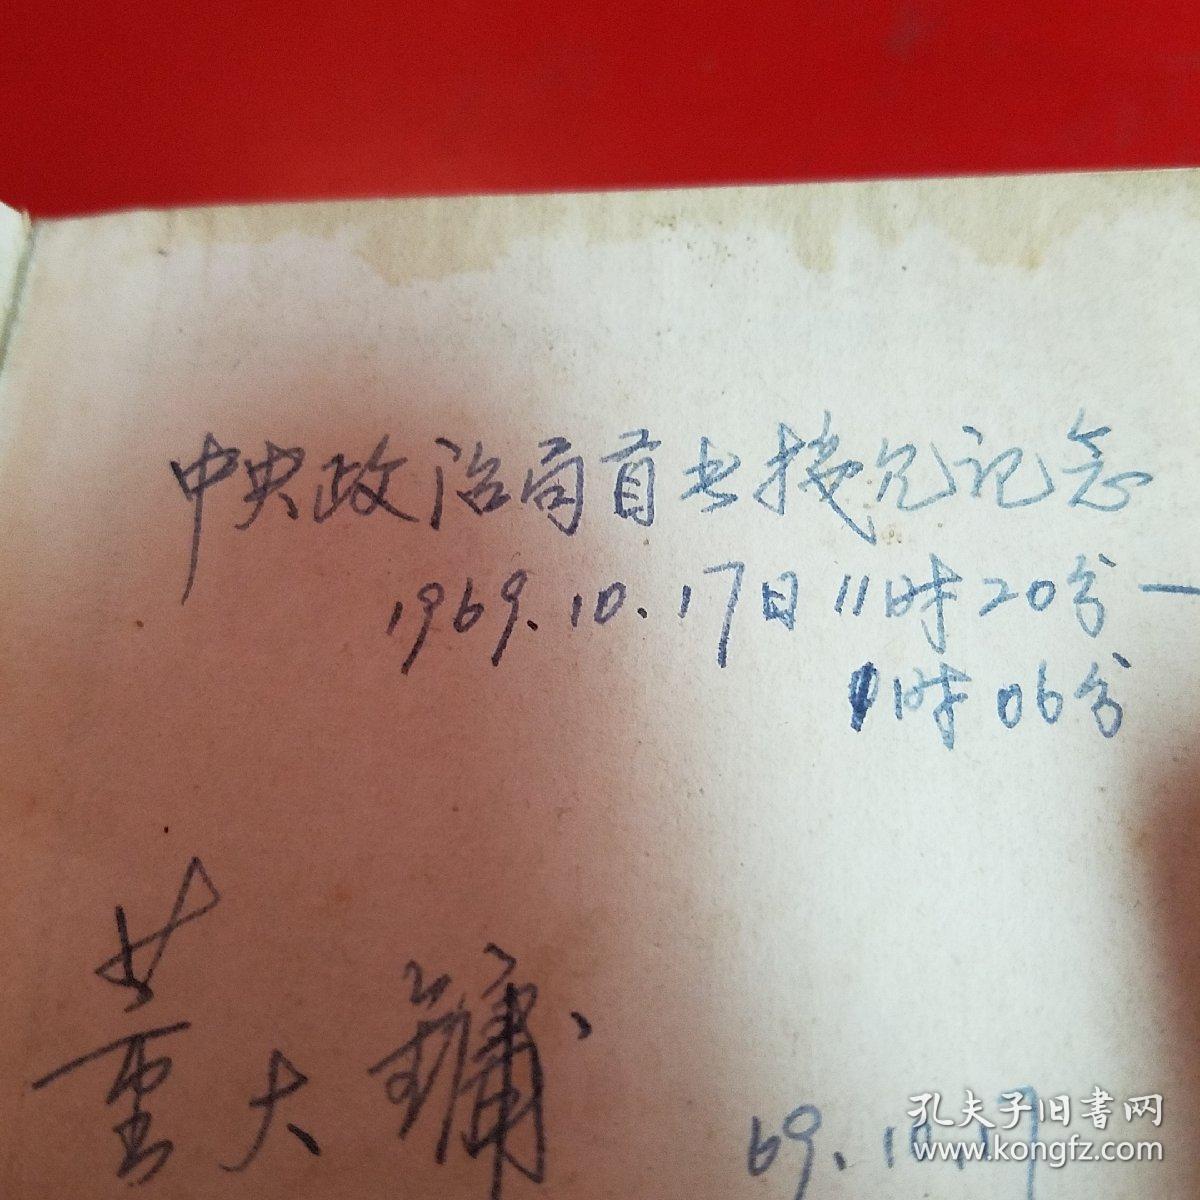 中央政治局首长接见记念
1969.10.17日11时20分一
11时06分
董大镛
69.10.17
孔夫子旧书网
www.kongfz.com